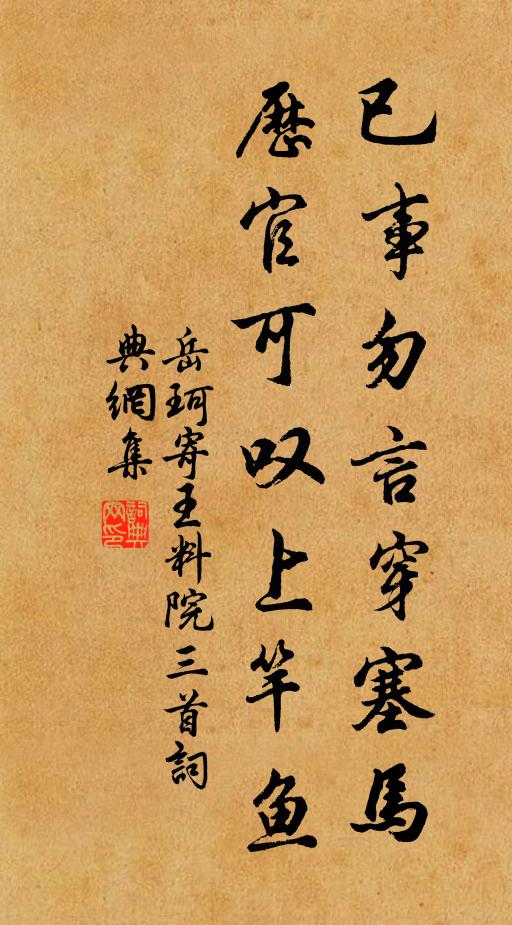 已事勿言穿塞馬
歷官可叹上竿鱼
岳珂寄王料院三首詞
典網集
詞典網印